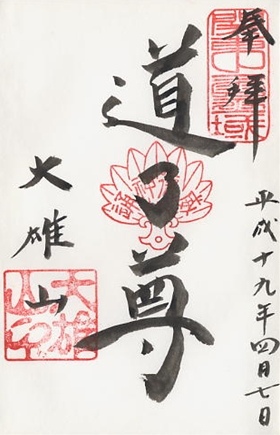 奉拝
道了尊
平成十九年四月七日
大雄山